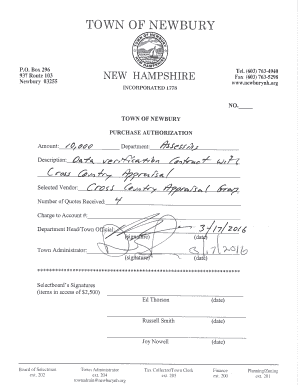 TOWN OF NEWBURY
P.O. Box 296
937 Route 103
Newbury 03255
Tel. (603) 763-4940
Fax (603) 763-5298
www.newburynh.org
NEW HAMPSHIRE
INCORPORATED 1778
NO.
TOWN OF NEWBURY
PURCHASE AUTHORIZATION
Amount: 10,000 Department: Assessing
Description: Data verification Contract with
Cross Country Appraisal
Selected Vendor: Cross Country Appraisal Group
Number of Quotes Received: 4
Charge to Account #:
Department Head/Town Official 3/17/2016
(signature) (date)
Town Administrator: 3/17/2016
(signature) (date)
Selectboard's Signatures
(items in access of $2,500)
Ed Thorson (date)
Russell Smith (date)
Joy Nowell (date)
Board of Selectmen Town Administrator Tax Collector/Town Clerk Finance Planning/Zoning
ext. 202 ext. 204 ext. 205 ext. 206 ext. 201